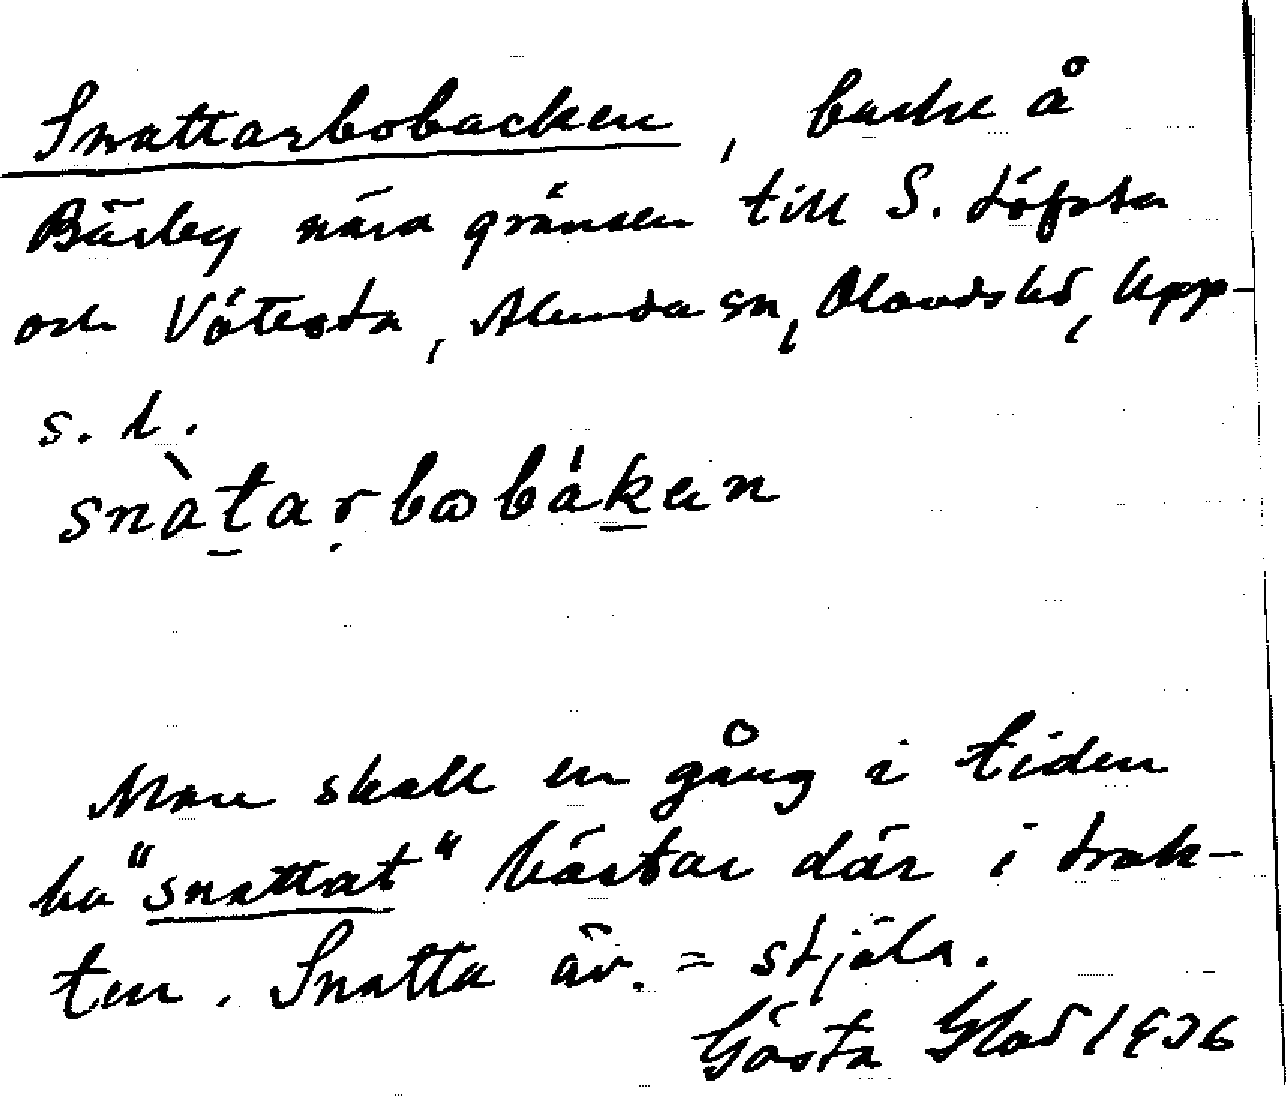 Snattarbobacken, backe å
Bärby nära gränsen till S. Löfsta
och Våtersta, Alunda sn, Olands hd, Upp-
s. l.
snàtarbobákan
Man skall en gång i tiden
ha "snattat" hästar där i trak-
ten. Snatta äv. = stjäla.
Gösta Glad 1936